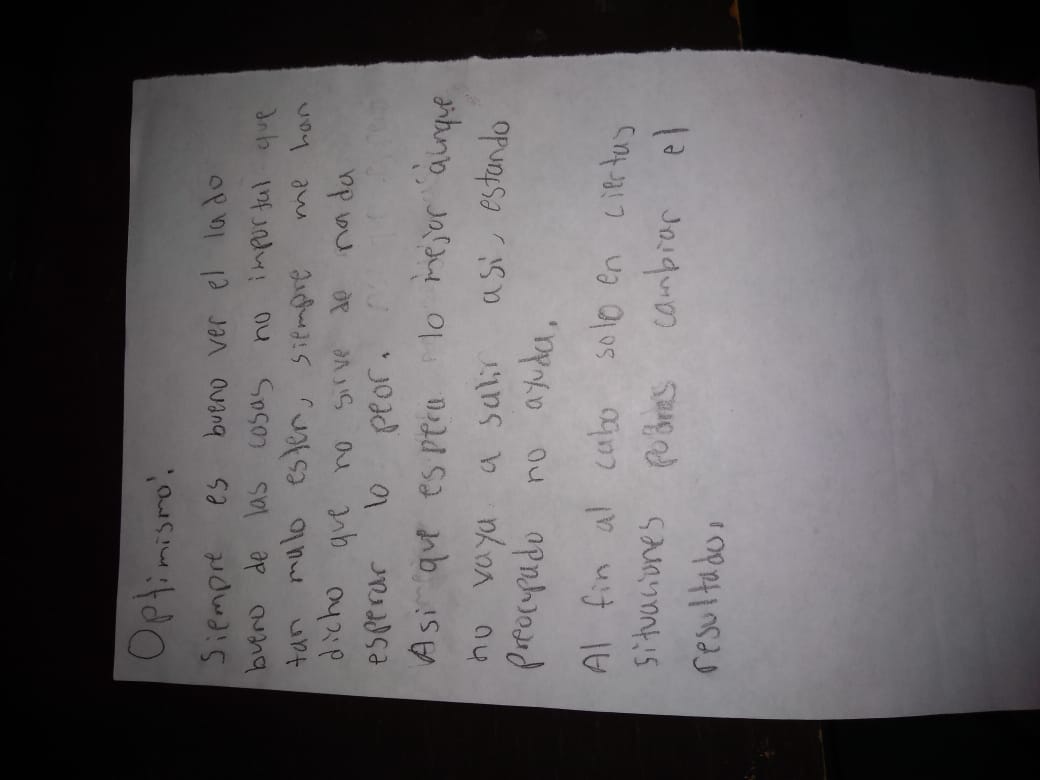 Optimismo.
Siempre es bueno ver el lado
bueno de las cosas no importal que
tan malo esten, siempre me han
dicho que no sirve de nada
esperar lo peor.
Asi que espera lo mejor aunque
no vaya a salir asi, estando
preocupado no ayuda.
Al fin al cabo solo en ciertas
situaciones podras cambiar el
resultado.